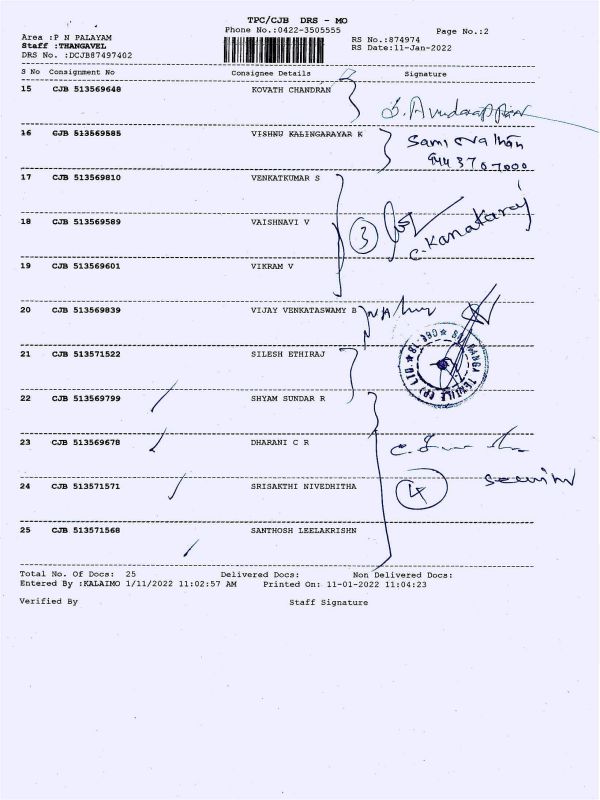 TPC/CJB DRS - MO
Phone No.:0422-3505555
Page No.:2
Area :P N PALAYAM
RS No.:874974
Staff :THANGAVEL
RS Date:11-Jan-2022
DRS No. :DCJB87497402
S No Consignment No Consignee Details Signature
15 CJB 513569648 KOVATH CHANDRAN
16 CJB 513569585 VISHNU KALINGARAYAR K
9443707000
17 CJB 513569810 VENKATKUMAR S
18 CJB 513569589 VAISHNAVI V
3 C. Kanakaraj
19 CJB 513569601 VIKRAM V
20 CJB 513569839 VIJAY VENKATASWAMY B
21 CJB 513571522 SILESH ETHIRAJ
22 CJB 513569799 SHYAM SUNDAR R
23 CJB 513569678 DHARANI C R
24 CJB 513571571 SRISAKTHI NIVEDHITHA
4
25 CJB 513571568 SANTHOSH LEELAKRISHN
Total No. Of Docs: 25 Delivered Docs: Non Delivered Docs:
Entered By :KALAIMO 1/11/2022 11:02:57 AM Printed On: 11-01-2022 11:04:23
Verified By Staff Signature